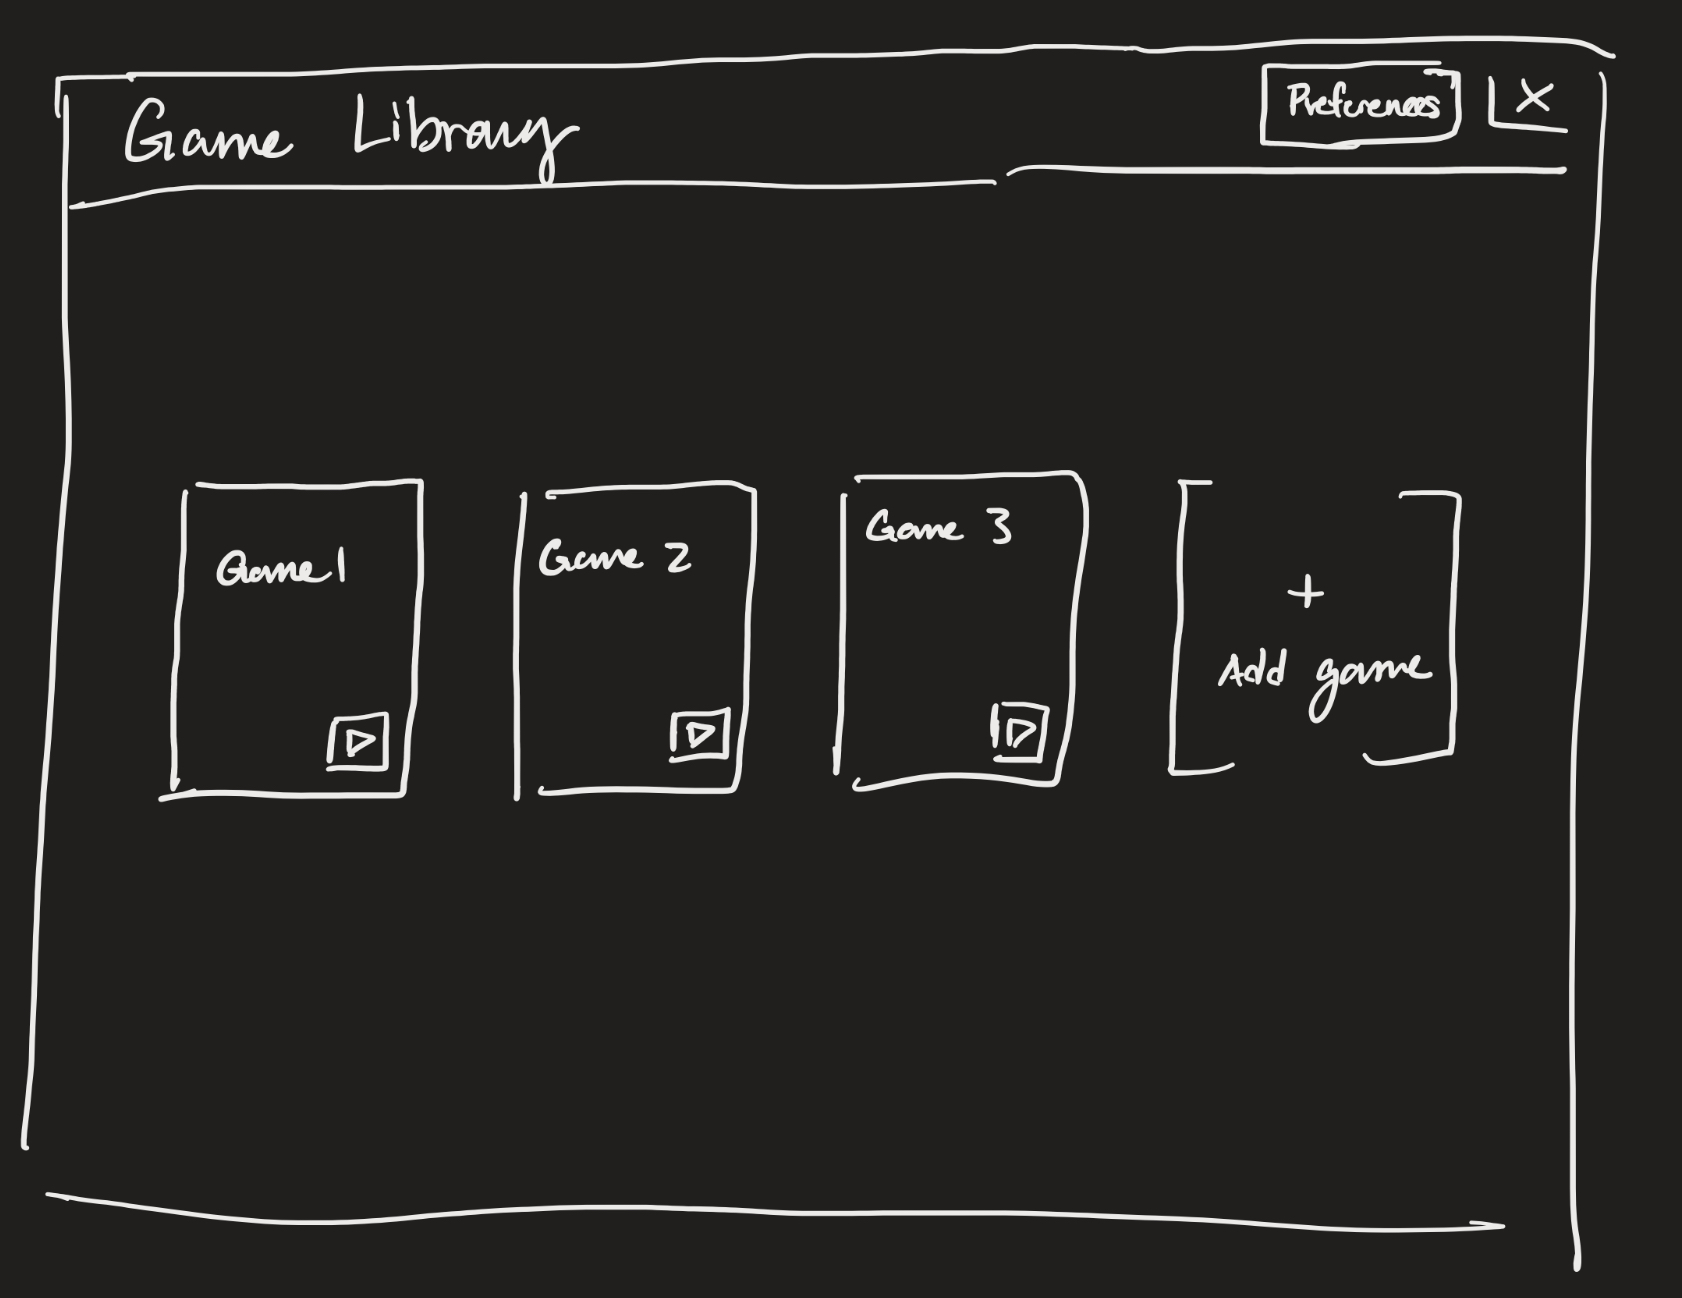 Game Library
Preferences
X
Game 1
Game 2
Game 3
+
Add game